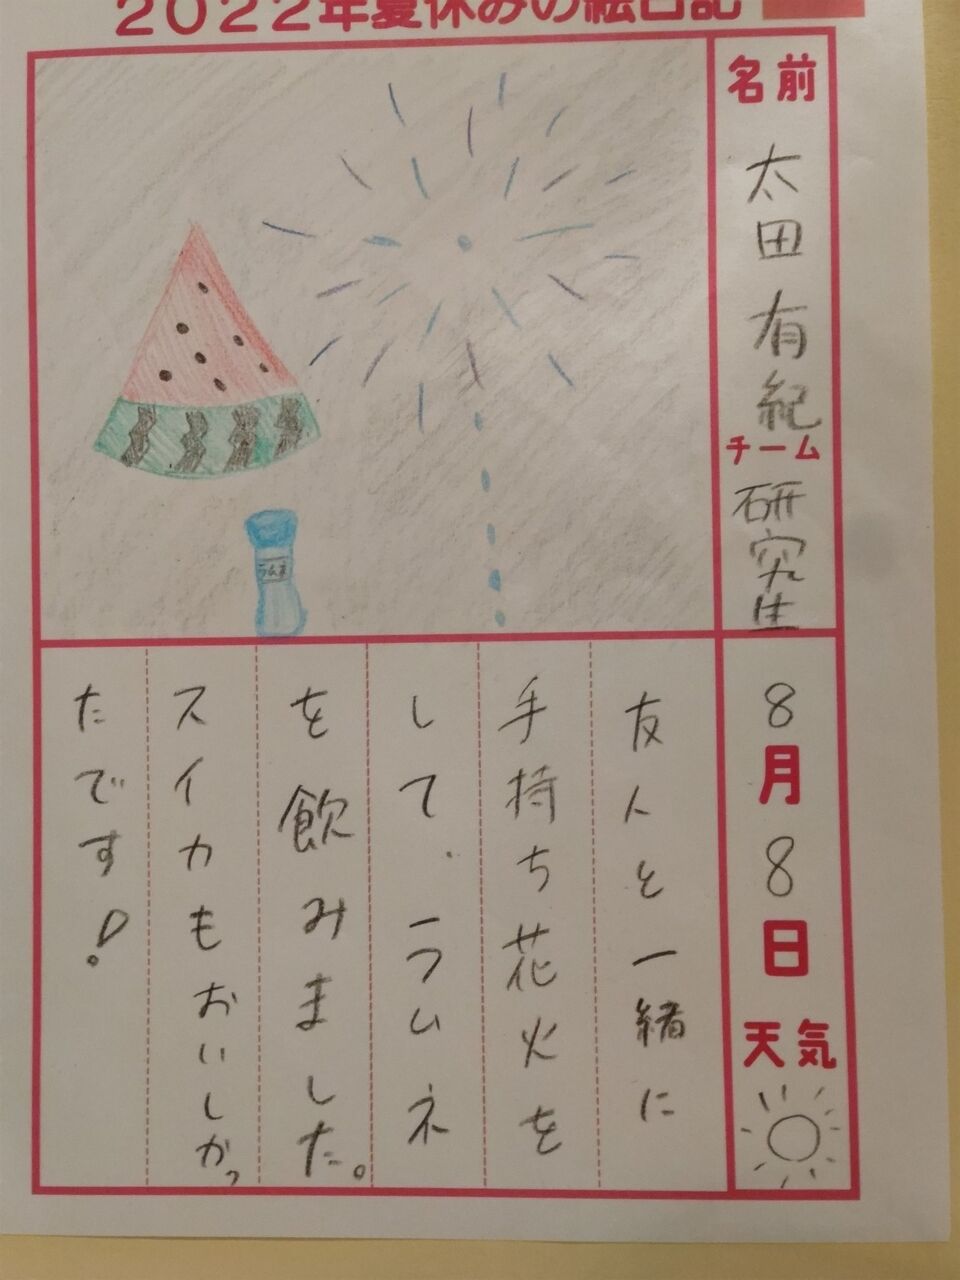 2022年夏休みの絵日記
名前
太田有紀
チーム
研究生
8月8日
天気
ラムネ
友人と一緒に
手持ち花火を
して、ラムネ
を飲みました。
スイカもおいしかっ
たです!